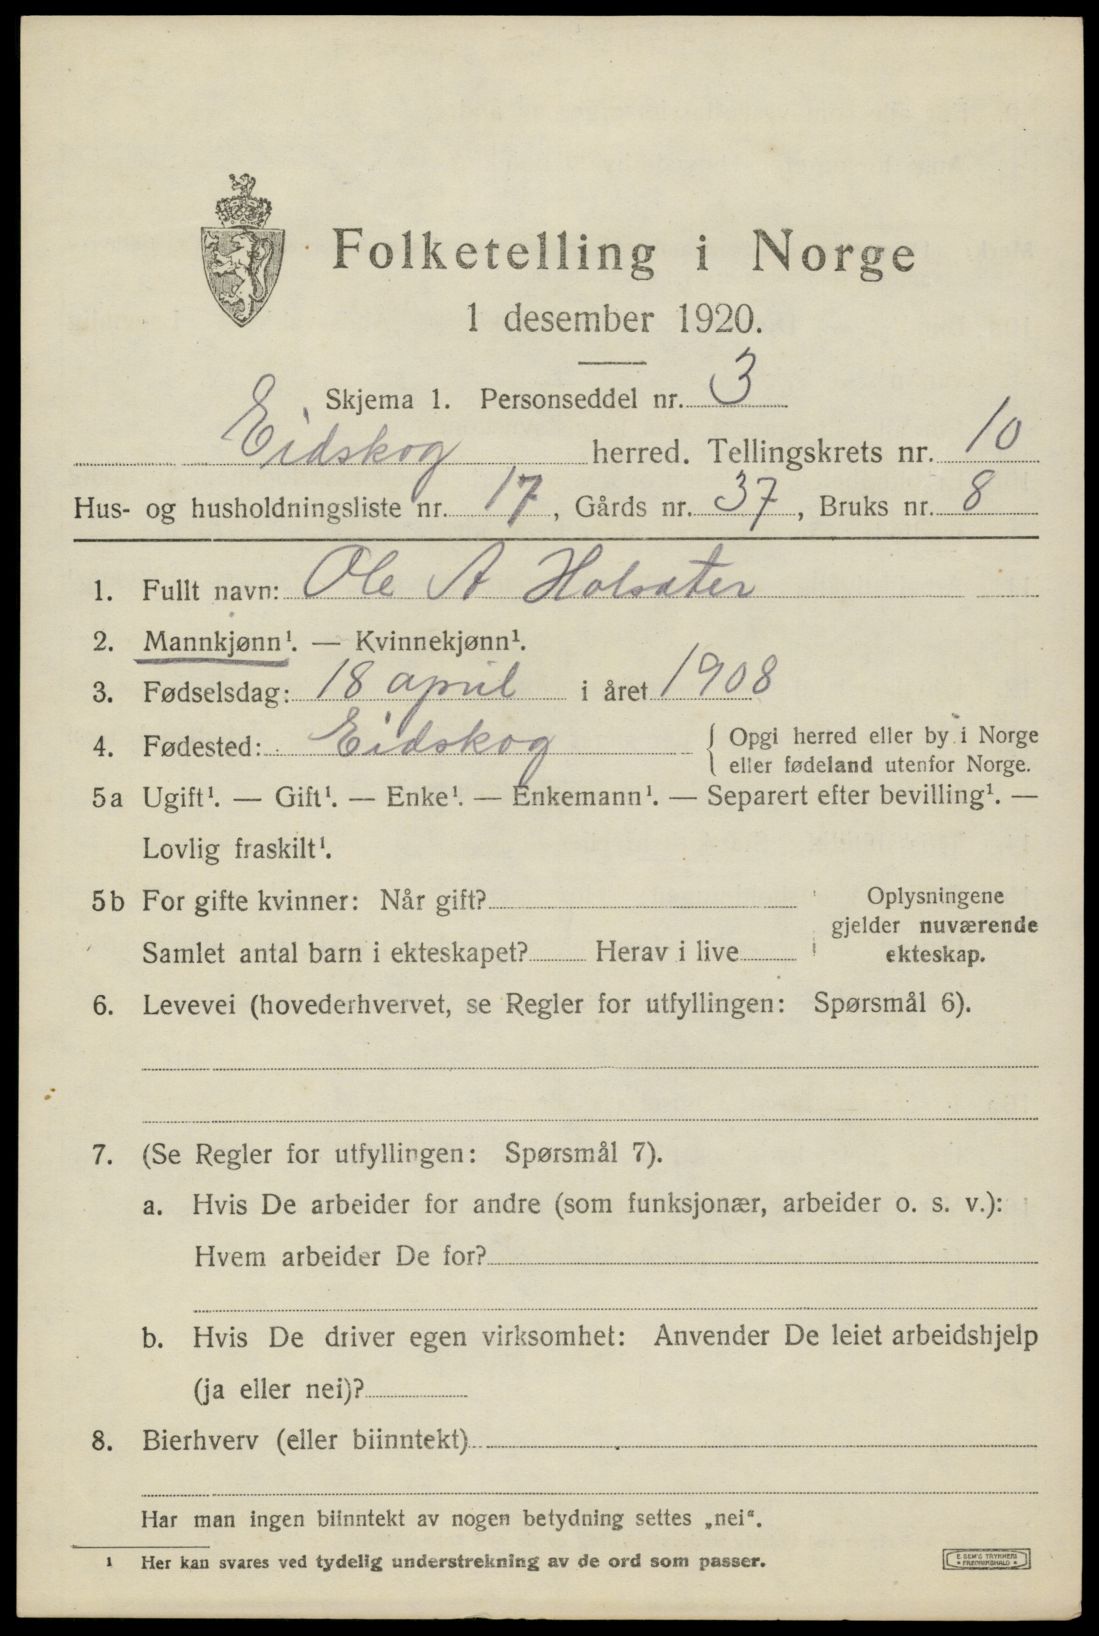 Folketelling i Norge
1 desember 1920.
Skjema 1. Personseddel nr. 3
Eidskog herred. Tellingskrets nr. 10
Hus- og husholdningsliste nr. 17, Gårds nr. 37, Bruks nr. 8
1. Fullt navn: Ole A Holsäter
2. Mannkjønn¹. — Kvinnekjønn¹.
3. Fødselsdag: 18 april i året 1908
4. Fødested: Eidskog { Opgi herred eller by i Norge
eller fødeland utenfor Norge.
5a Ugift¹. — Gift¹. — Enke¹. — Enkemann¹. — Separert efter bevilling¹. —
Lovlig fraskilt¹.
5b For gifte kvinner: Når gift?
Samlet antal barn i ekteskapet? Herav i live
Oplysningene
gjelder nuværende
ekteskap.
6. Levevei (hovederhvervet, se Regler for utfyllingen: Spørsmål 6).
7. (Se Regler for utfyllingen: Spørsmål 7).
a. Hvis De arbeider for andre (som funksjonær, arbeider o. s. v.):
Hvem arbeider De for?
b. Hvis De driver egen virksomhet: Anvender De leiet arbeidshjelp
(ja eller nei)?
8. Bierhverv (eller biinntekt)
Har man ingen biinntekt av nogen betydning settes „nei“.
¹ Her kan svares ved tydelig understrekning av de ord som passer.
E. SEM'S TRYKKERI
FREDRIKSHALD